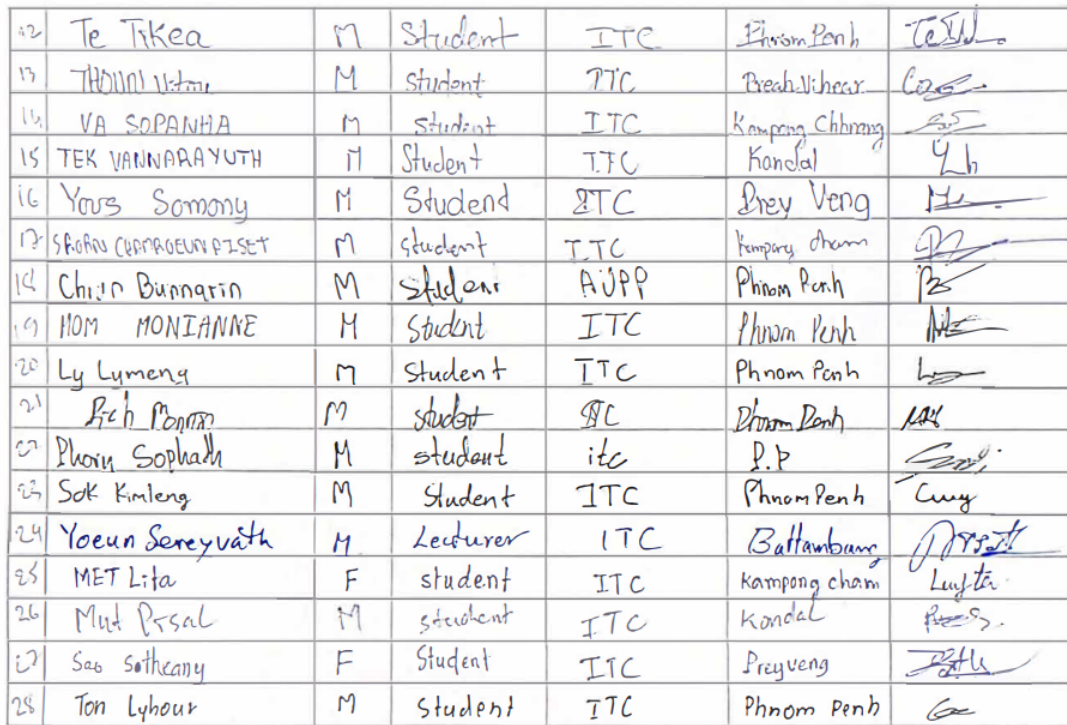 12 Te Tikea M Student ITC Phnom Penh
13 M student ITC Preah Vihear
14 VA SOPANHA M Student ITC Kampong Chhnang
15 TEK VANNARAYUTH M Student ITC Kandal
16 Yous Somony M Student ITC Prey Veng
17 M student ITC Kampong cham
18 Bunnarin M student AUPP Phnom Penh
19 MOM MONIANNE M Student ITC Phnom Penh
20 Ly Lymeng M student ITC Phnom Penh
21 Pich M student ITC Phnom Penh
22 Phorn Sophath M student itc P.P
23 Sok Kimleng M Student ITC Phnom Penh
24 Yoeun Sereyvath M Lecturer ITC Battambang
25 MET Lita F student ITC Kampong cham
26 Mut M student ITC Kandal
27 Sao Sotheany F Student ITC Preyveng
28 Ton Lyhour M Student ITC Phnom Penh